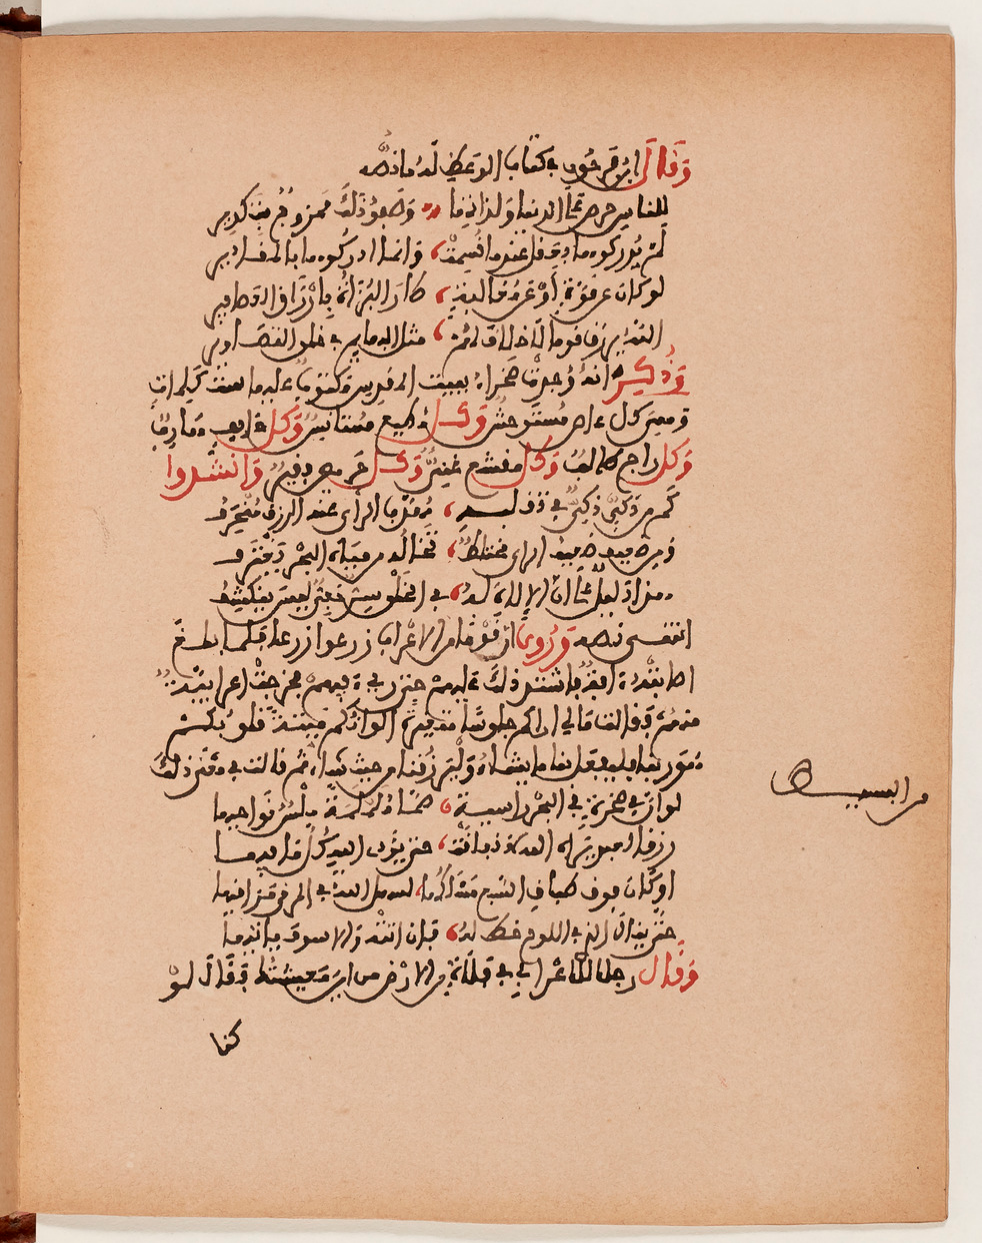 وَقَالَ ابْنُ فرحون في كتاب الوعظ له ما نصه
للناس حرص على الدنيا ولذاتها وصفو ذلك ممزوج بتكدير
لم يدركوها بعقل عندما قسمت وانما ادركوها بالمقادير
لو كان عن قوة أو عن مغالبة طار البزاة بارزاق العصافير
وَذُكِرَ انه وجد في صخرة ببيت المقدس مكتوبا عليها ست كلمات
ومعنى كل عاص مستوحش وَكل طيع مستانس وَكل خايف هارب
وَكل راج طالب وَكل مقنع غني وَكل حريص فقير وَانشدوا
كم من ذكي ذكي في تقلبه مهذب الراى عنه الرزق منحرف
ومن ضعيف ضعيف الراى مختلط كانه من مياه البحر يغترف
هذا دليل على ان الاله له في الخلق سر خفي ليس ينكشف
انتهى نصه وَرُوي ان قوما من الاعراب زرعوا زرعا فلما بلغ
اصابته افة فاشتد ذلك عليهم حتى ريء فيهم فخرجت اعرابية
منهم فقالت مالي اراكم جلوسا
هو ربنا يفعل بنا ما يشاء وليرزقنا من حيث شاء ثم قالت في معنى ذلك
لو ان في صخرة في البحر راسية صماء ململمة ملس نواحيها
رزقا لعبد يراه الله لانفلقت حتى يؤدى اليه كل ما فيها
او كان فوق طباق السبع مسلكها لسهل الله في المرقى مراقيها
حتى ينال الذي في اللوح خط له فان اتته والا سوف ياتيها
وَقَال رجل لاعرابي في فلاة من الارض من اين معيشتك فقال لو
كنا
من البسيط